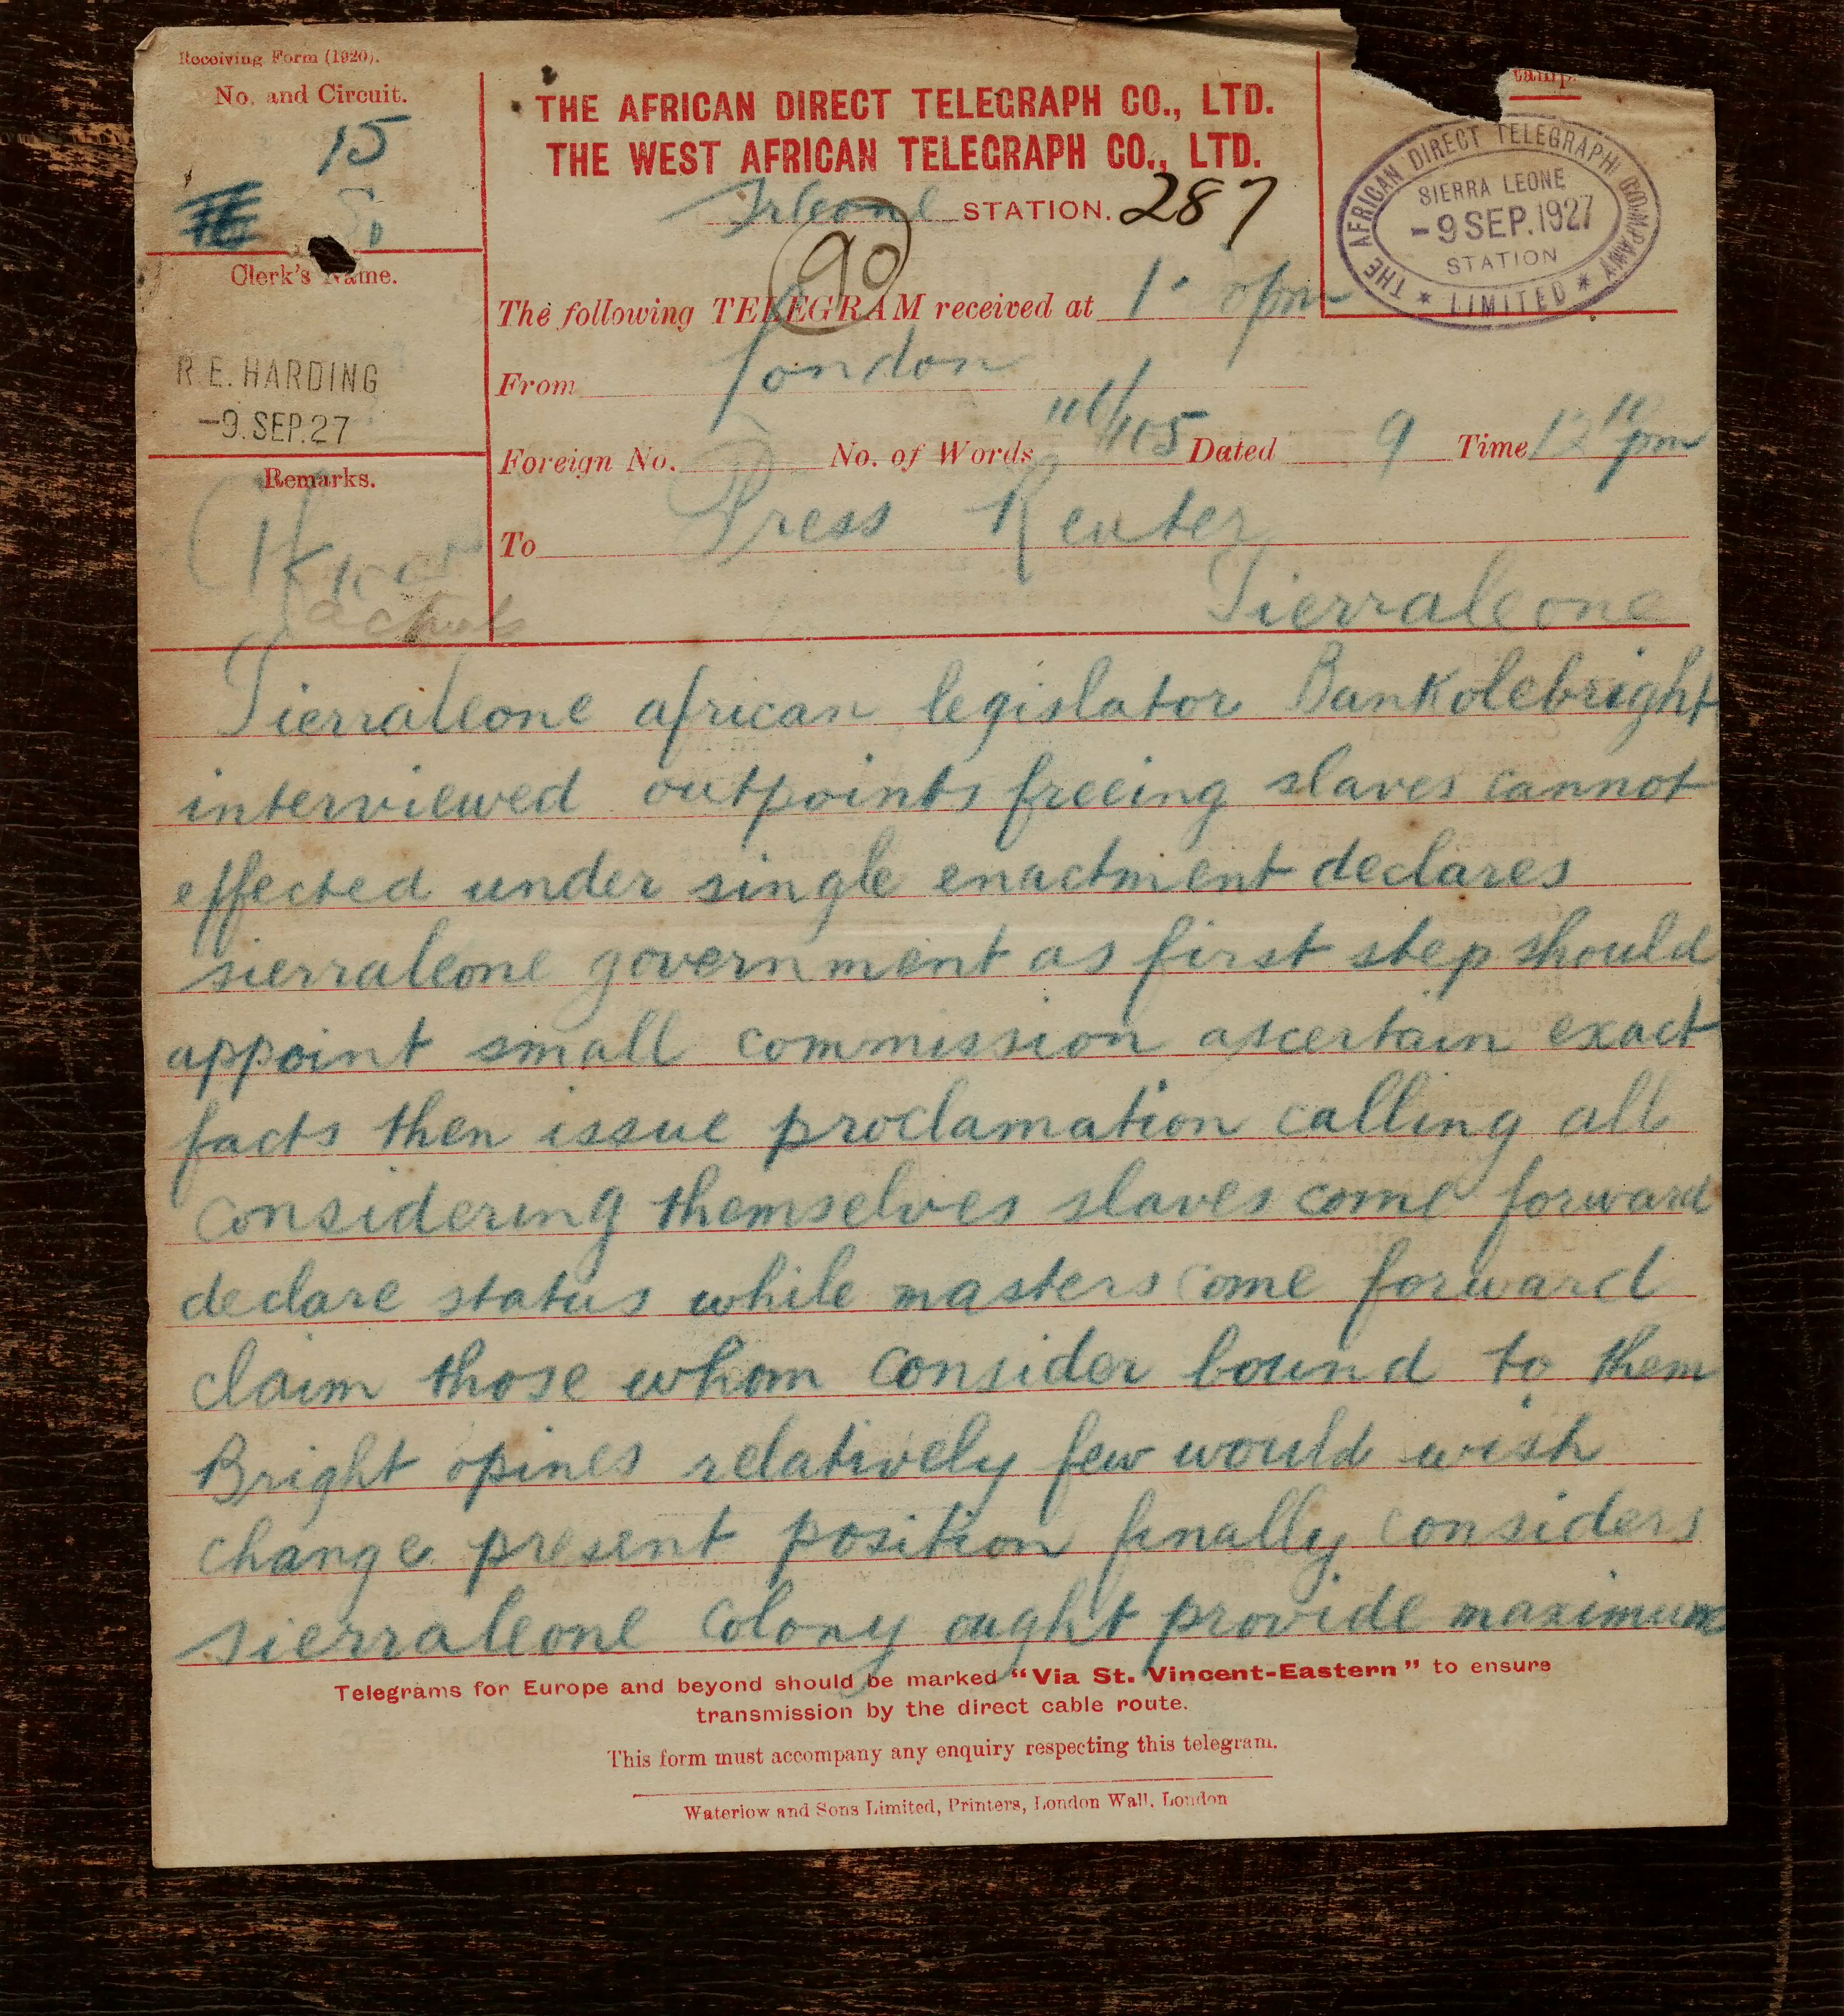 Receiving Form (1920).
No. and Circuit.
15
THE AFRICAN DIRECT TELEGRAPH CO., LTD.
THE WEST AFRICAN TELEGRAPH CO., LTD.
Srleone STATION. 287
90
THE AFRICAN DIRECT TELEGRAPH COMPANY
SIERRA LEONE
-9 SEP. 1927
STATION
* LIMITED *
Clerk's Name.
R.E. HARDING
-9. SEP. 27
The following TELEGRAM received at 1. pm
From London
Foreign No. No. of Words 116/105 Dated 9 Time 12 10 pm
Remarks.
To Press Reuter
Sierraleone
Sierraleone african legislator Bankolebright
interviewed outpoints freeing slaves cannot
effected under single enactment declares
sierraleone government as first step should
appoint small commission ascertain exact
facts then issue proclamation calling all
considering themselves slaves come forward
declare status while masters come forward
claim those whom consider bound to them
Bright opines relatively few would wish
change present position finally considers
sierraleone colony ought provide maximum
Telegrams for Europe and beyond should be marked "Via St. Vincent-Eastern" to ensure
transmission by the direct cable route.
This form must accompany any enquiry respecting this telegram.
Waterlow and Sons Limited, Printers, London Wall, London